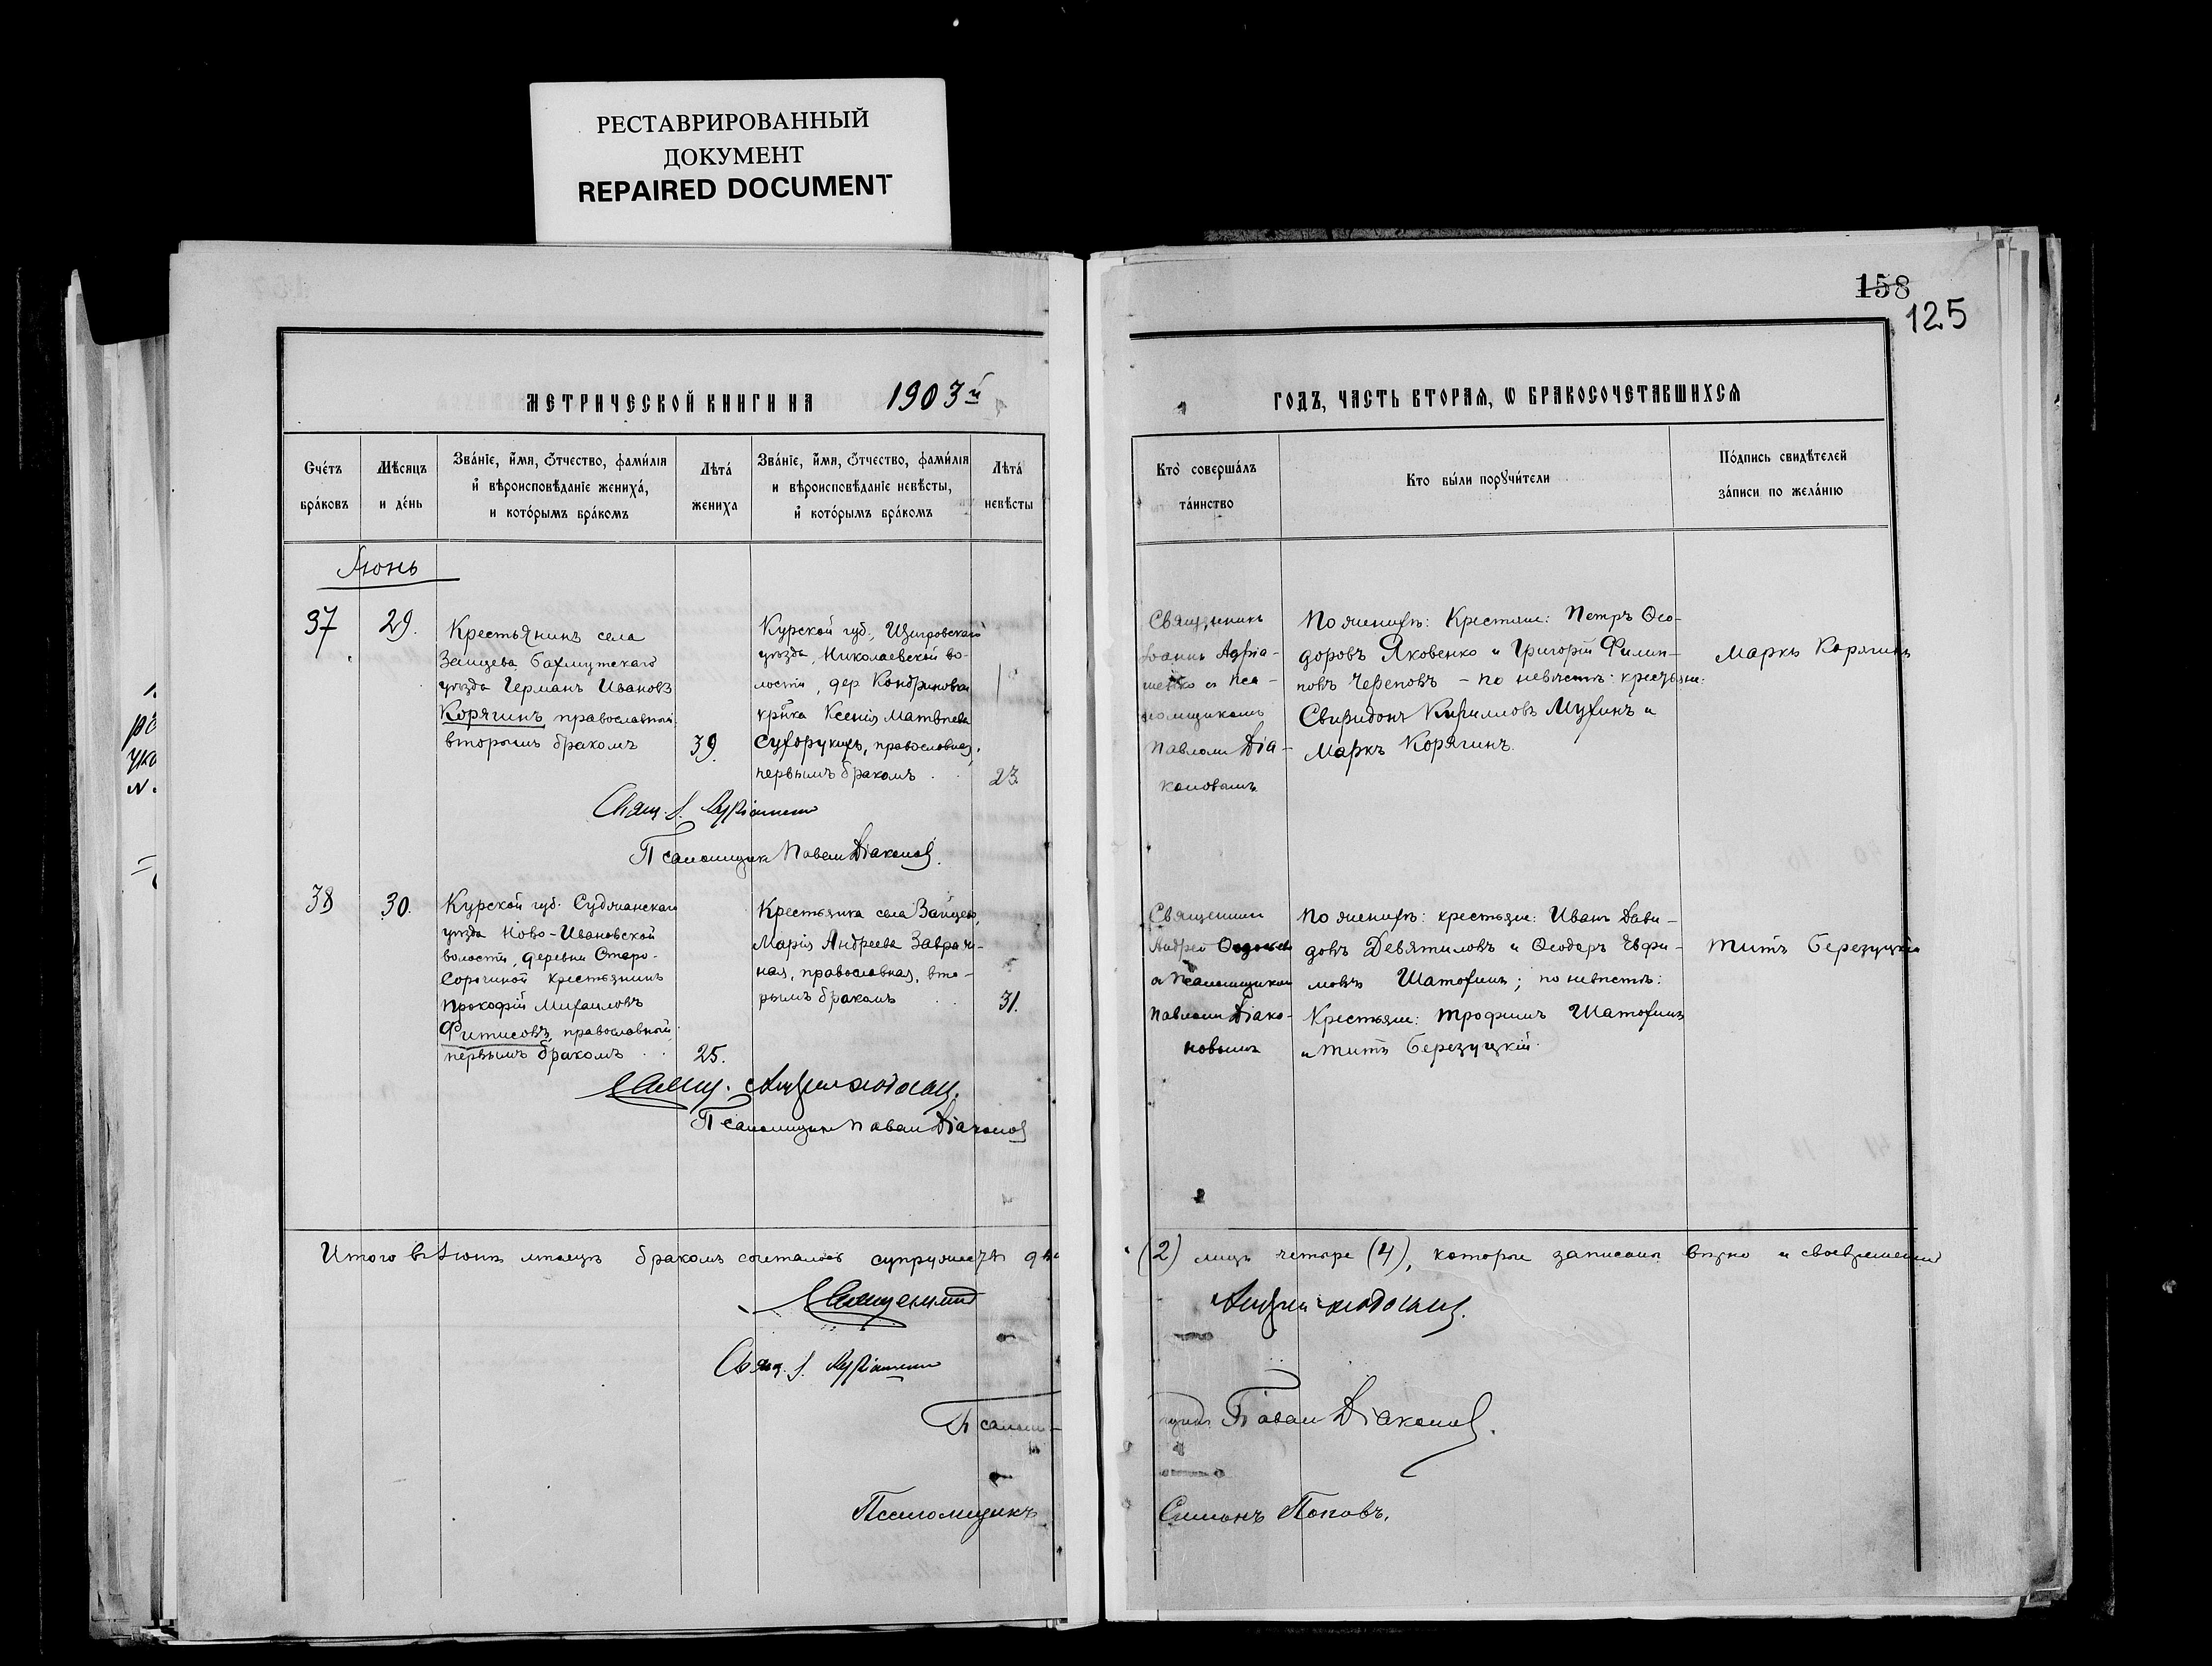 РЕСТАВРИРОВАННЫЙ
ДОКУМЕНТ
REPAIRED DOCUMENT
158
125
МЕТРИЧЕСКОЙ КНИГИ НА 1903й
ГОДЪ, ЧАСТЬ ВТОРАЯ, Ѡ БРАКОСОЧЕТАВШИХСЯ
Сче́тъ
бра́ковъ
Мѣсяцъ
и де́нь
Зва́нїе, и́мя, ѻ́тчество, фами́лїя
и҆ вѣроисповѣ́данїе жениха́,
и кото́рымъ бра́комъ
Лѣта́
жениха
Зва́нїе, и́мя, ѻ́тчество, фами́лїя
и вѣроисповѣ́данїе невѣ́сты,
и҆ кото́рымъ бра́комъ
Лѣта́
невѣ́сты
Кто̀ соверша́лъ
та́инство
Кто бы́ли порꙋчи́тели
По́дпись свидѣ́телей
за́писи по жела́нїю
Іюнь
37
29.
Крестьянинъ села
Зайцева Бахмутскаго
уѣзда Германъ Ивановъ
Корягинъ православный
вторымъ бракомъ
39.
Курской губ., Щигровскаго
уѣзда, Николаевской во-
лости, дер Кондриновки
кр̃нка Ксенія Матвѣева
Сухорукихъ, православная,
первымъ бракомъ
23.
Священникъ
Іоаннъ Адріа-
шенко и пса-
ломщикомъ
Павломъ Діа-
коновымъ
По женихѣ: Крестьяне: Петръ Ѳео-
доровъ Яковенко и Григорій Филип-
повъ Череповъ - по невѣстѣ: крестьяне:
Свиридонъ Кирилловъ Мухинъ и
Маркъ Корягинъ.
Маркъ Корягинъ
Свящ. І.
Псаломщикъ Павелъ Діаконовъ.
38
30.
Курской губ. Суджанскаго
уѣзда Ново-Ивановской
волости, деревни Старо-
Сорочиной крестьянинъ
Прокофій Михаиловъ
Фитисовъ, православный,
первымъ бракомъ
25.
Крестьянка села Зайцева,
Марія Андреева Заврачи-
ная, православная, вто-
рымъ бракомъ
31.
Священникъ
Андрей
и Псаломщикомъ
Павломъ Діако-
новымъ
По женихѣ: крестьяне: Иванъ Дави-
довъ Девятиловъ и Ѳеодоръ Евфи-
мовъ Шатохинъ; по невѣстѣ:
Крестьяне: Трофимъ Шатохинъ
и Титъ Березуцкій.
Титъ Березуцкій
Свящ. Андрей
Псаломщикъ Павелъ Діаконовъ
Итого въ Іюнѣ мѣсяцѣ бракомъ сочеталось супружествъ два (2) лицъ четыре (4), которые записаны вѣрно и своевременно
Священникъ Андрей
Свящ. І.
Псаломщикъ Павелъ Діаконовъ.
Псаломщикъ Симонъ Поповъ.